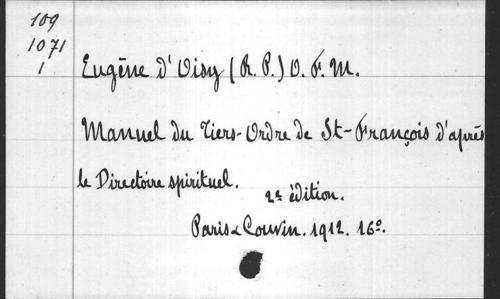 109
1071
1
Eugène d'Oisy (R. P.) O. F. M.
Manuel du Tiers-Ordre de St-François d'après
le Directoire spirituel.
2e édition.
Paris & Couvin. 1912. 16o.